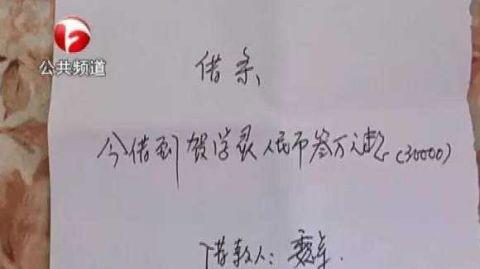 公共频道
借条
今借到贺学灵人民币叁万元整(30000)
借款人: